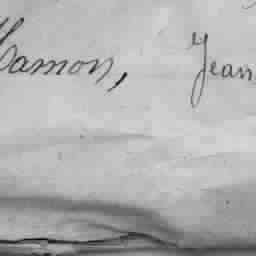 Hamon, Jean